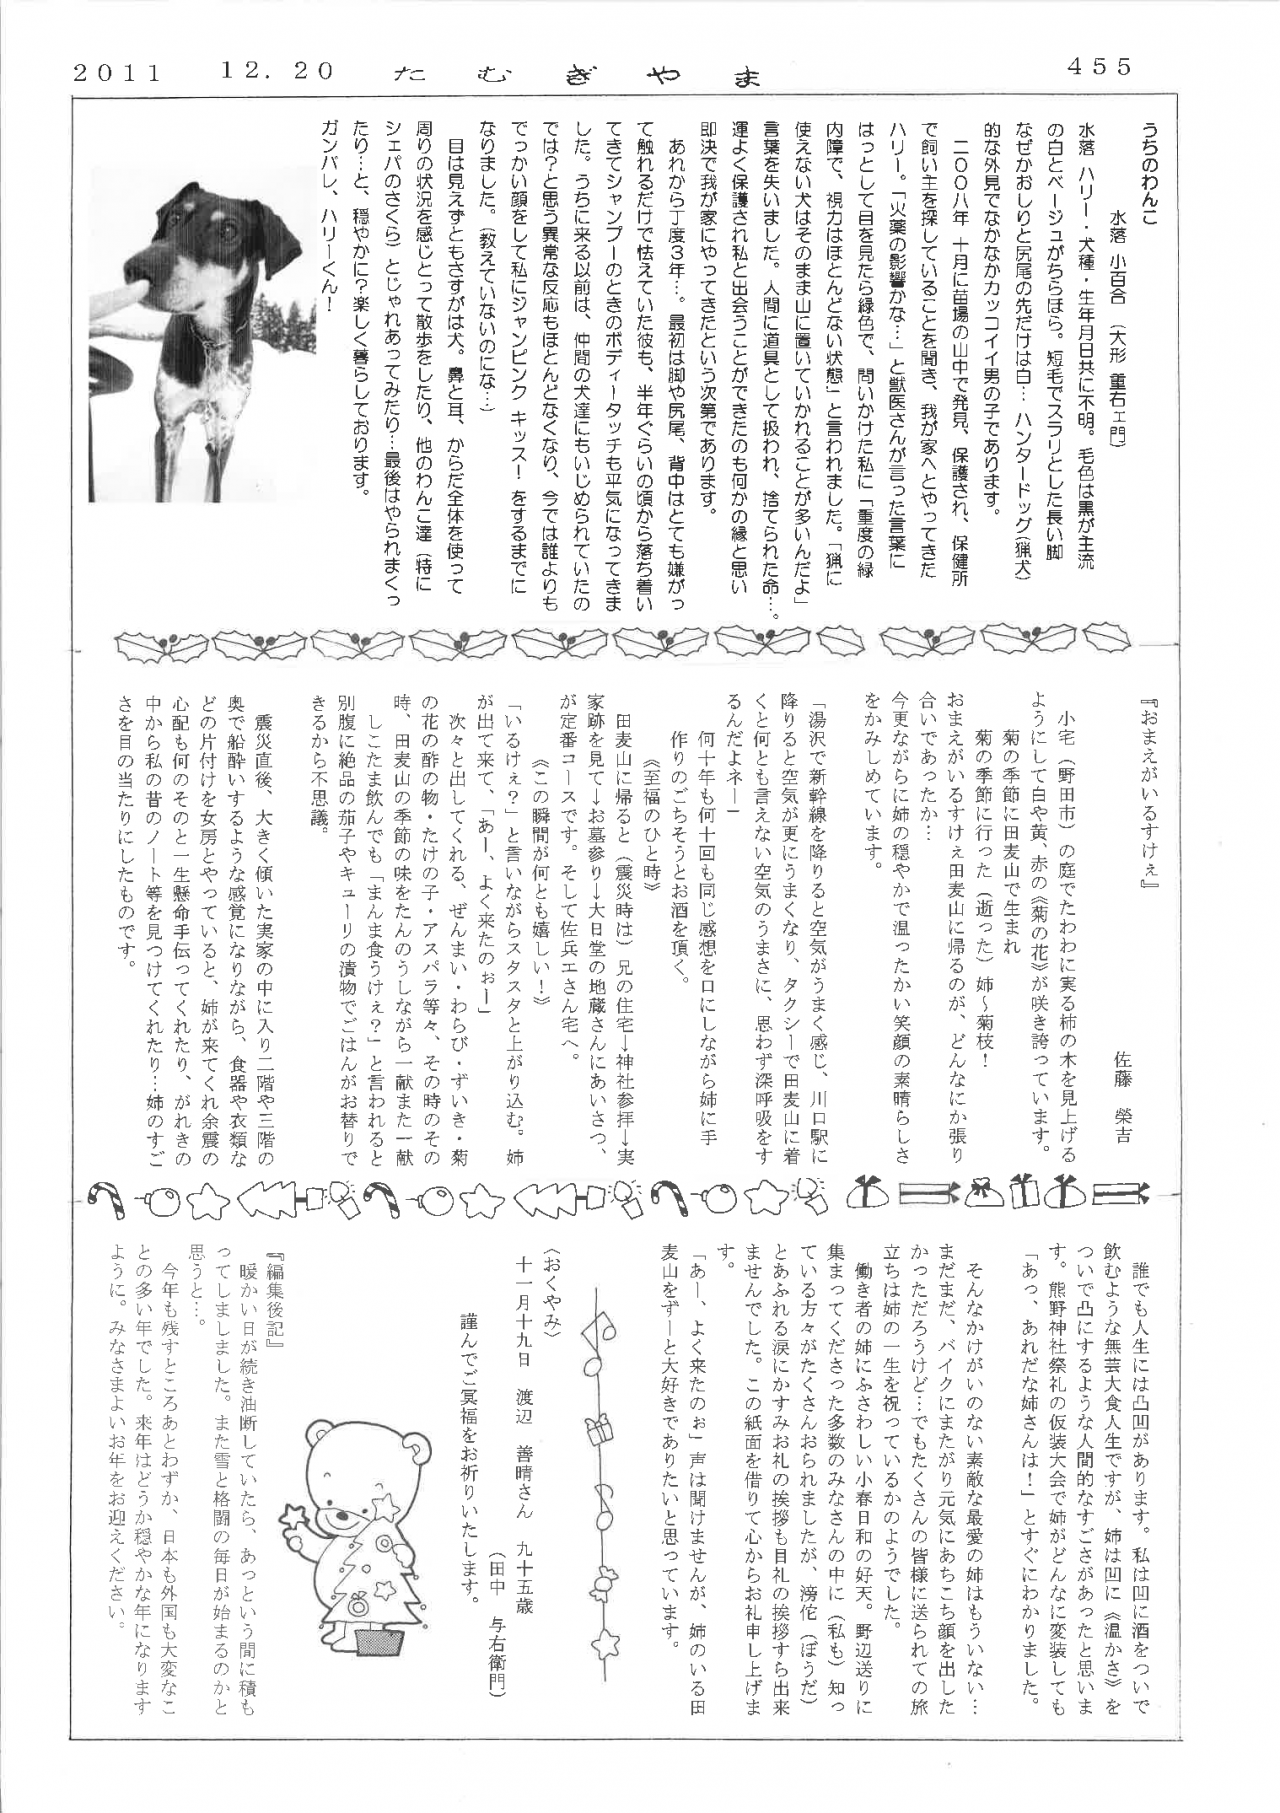 2011 12.20 たむぎやま 455
うちのわんこ
水落 小百合 (大形 重右エ門)
水落 ハリー・犬種・生年月日共に不明。毛色は黒が主流
の白とベージュがちらほら。短毛でスラリとした長い脚
なぜかおしりと尻尾の先だけは白… ハンタードッグ(猟犬)
的な外見でなかなかカッコイイ男の子であります。
二〇〇八年 十月に苗場の山中で発見、保護され、保健所
で飼い主を探していることを聞き、我が家へとやってきた
ハリー。「火薬の影響かな…」と獣医さんが言った言葉に
はっとして目を見たら緑色で、問いかけた私に「重度の緑
内障で、視力はほとんどない状態」と言われました。「猟に
使えない犬はそのまま山に置いていかれることが多いんだよ」
言葉を失いました。人間に道具として扱われ、捨てられた命…。
運よく保護され私と出会うことができたのも何かの縁と思い
即決で我が家にやってきたという次第であります。
あれから丁度3年…。最初は脚や尻尾、背中はとても嫌がっ
て触れるだけで怯えていた彼も、半年ぐらいの頃から落ち着い
てきてシャンプーのときのボディータッチも平気になってきま
した。うちに来る以前は、仲間の犬達にもいじめられていたの
では?と思う異常な反応もほとんどなくなり、今では誰よりも
でっかい顔をして私にジャンピンク キッス!をするまでに
なりました。(教えていないのにな…)
目は見えずともさすがは犬。鼻と耳、からだ全体を使って
周りの状況を感じとって散歩をしたり、他のわんこ達(特に
シェパのさくら)とじゃれあってみたり…最後はやられまくっ
たり…と、穏やかに?楽しく暮らしております。
ガンバレ、ハリーくん!
『おまえがいるすけぇ』
佐藤 榮吉
小宅(野田市)の庭でたわわに実る柿の木を見上げる
ようにして白や黄、赤の《菊の花》が咲き誇っています。
菊の季節に田麦山で生まれ
菊の季節に行った(逝った)姉~菊枝!
おまえがいるすけぇ田麦山に帰るのが、どんなにか張り
合いであったか…
今更ながらに姉の穏やかで温ったかい笑顔の素晴らしさ
をかみしめています。
「湯沢で新幹線を降りると空気がうまく感じ、川口駅に
降りると空気が更にうまくなり、タクシーで田麦山に着
くと何とも言えない空気のうまさに、思わず深呼吸をす
るんだよネー」
何十年も何十回も同じ感想を口にしながら姉に手
作りのごちそうとお酒を頂く。
《至福のひと時》
田麦山に帰ると(震災時は)兄の住宅→神社参拝→実
家跡を見て→お墓参り→大日堂の地蔵さんにあいさつ、
が定番コースです。そして佐兵エさん宅へ。
《この瞬間が何とも嬉しい!》
「いるけぇ?」と言いながらスタスタと上がり込む。姉
が出て来て、「あー、よく来たのぉー」
次々と出してくれる、ぜんまい・わらび・ずいき・菊
の花の酢の物・たけの子・アスパラ等々、その時のその
時、田麦山の季節の味をたんのうしながら一献また一献
しこたま飲んでも「まんま食うけぇ?」と言われると
別腹に絶品の茄子やキューリの漬物でごはんがお替りで
きるから不思議。
震災直後、大きく傾いた実家の中に入り二階や三階の
奥で船酔いするような感覚になりながら、食器や衣類な
どの片付けを女房とやっていると、姉が来てくれ余震の
心配も何のそのと一生懸命手伝ってくれたり、がれきの
中から私の昔のノート等を見つけてくれたり…姉のすご
さを目の当たりにしたものです。
誰でも人生には凸凹があります。私は凹に酒をついで
飲むような無芸大食人生ですが、姉は凹に《温かさ》を
ついで凸にするような人間的なすごさがあったと思いま
す。熊野神社祭礼の仮装大会で姉がどんなに変装しても
「あっ、あれだな姉さんは!」とすぐにわかりました。
そんなかけがいのない素敵な最愛の姉はもういない…
まだまだ、バイクにまたがり元気にあちこち顔を出した
かっただろうけど…でもたくさんの皆様に送られての旅
立ちは姉の一生を祝っているかのようでした。
働き者の姉にふさわしい小春日和の好天。野辺送りに
集まってくださった多数のみなさんの中に(私も)知っ
ている方々がたくさんおられましたが、滂佗(ぼうだ)
とあふれる涙にかすみお礼の挨拶も目礼の挨拶すら出来
ませんでした。この紙面を借りて心からお礼申し上げま
す。
「あー、よく来たのぉ」声は聞けませんが、姉のいる田
麦山をずーと大好きでありたいと思っています。
〈おくやみ〉
十一月十九日 渡辺 善晴さん 九十五歳
(田中 与右衛門)
謹んでご冥福をお祈りいたします。
『編集後記』
暖かい日が続き油断していたら、あっという間に積も
ってしましました。また雪と格闘の毎日が始まるのかと
思うと…。
今年も残すところあとわずか、日本も外国も大変なこ
との多い年でした。来年はどうか穏やかな年になります
ように。みなさまよいお年をお迎えください。